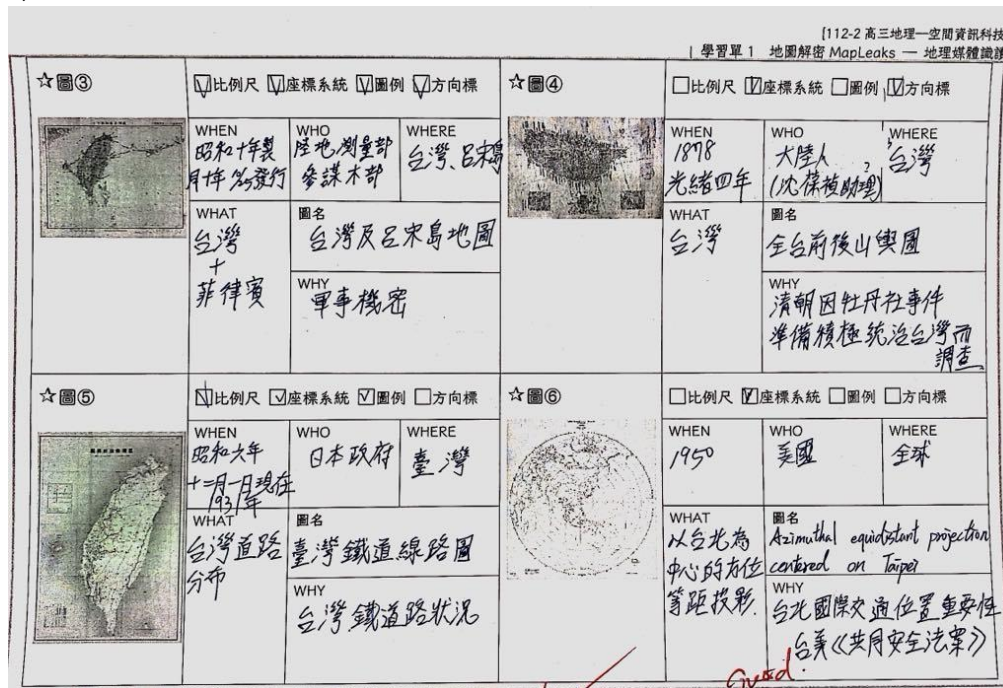 [112-2 高三地理—空間資訊科技
| 學習單 1 地圖解密 MapLeaks — 地理媒體識讀
☆圖③
☑比例尺 ☑座標系統 ☑圖例 ☑方向標
WHEN
昭和十年製
WHO
陸地測量部
參謀本部
WHERE
台灣、呂宋島
WHAT
台灣
+
菲律賓
圖名
台灣及呂宋島地圖
WHY
軍事機密
☆圖④
☐比例尺 ☑座標系統 ☐圖例 ☑方向標
WHEN
1878
光緒四年
WHO
大陸人?
(沈葆禎助理)
WHERE
台灣
WHAT
台灣
圖名
全台前後山輿圖
WHY
清朝因牡丹社事件
準備積極統治台灣而
調查
☆圖⑤
☑比例尺 ☑座標系統 ☑圖例 ☐方向標
WHEN
昭和六年
十二月一日現在
1931年
WHO
日本政府
WHERE
臺灣
WHAT
台灣道路
分布
圖名
臺灣鐵道線路圖
WHY
台灣鐵道路狀況
☆圖⑥
☐比例尺 ☑座標系統 ☐圖例 ☐方向標
WHEN
1950
WHO
美國
WHERE
全球
WHAT
以台北為
中心的方位
等距投影.
圖名
Azimuthal equidistant projection
centered on Taipei
WHY
台北國際交通位置重要性
台美《共同安全法案》
Good.